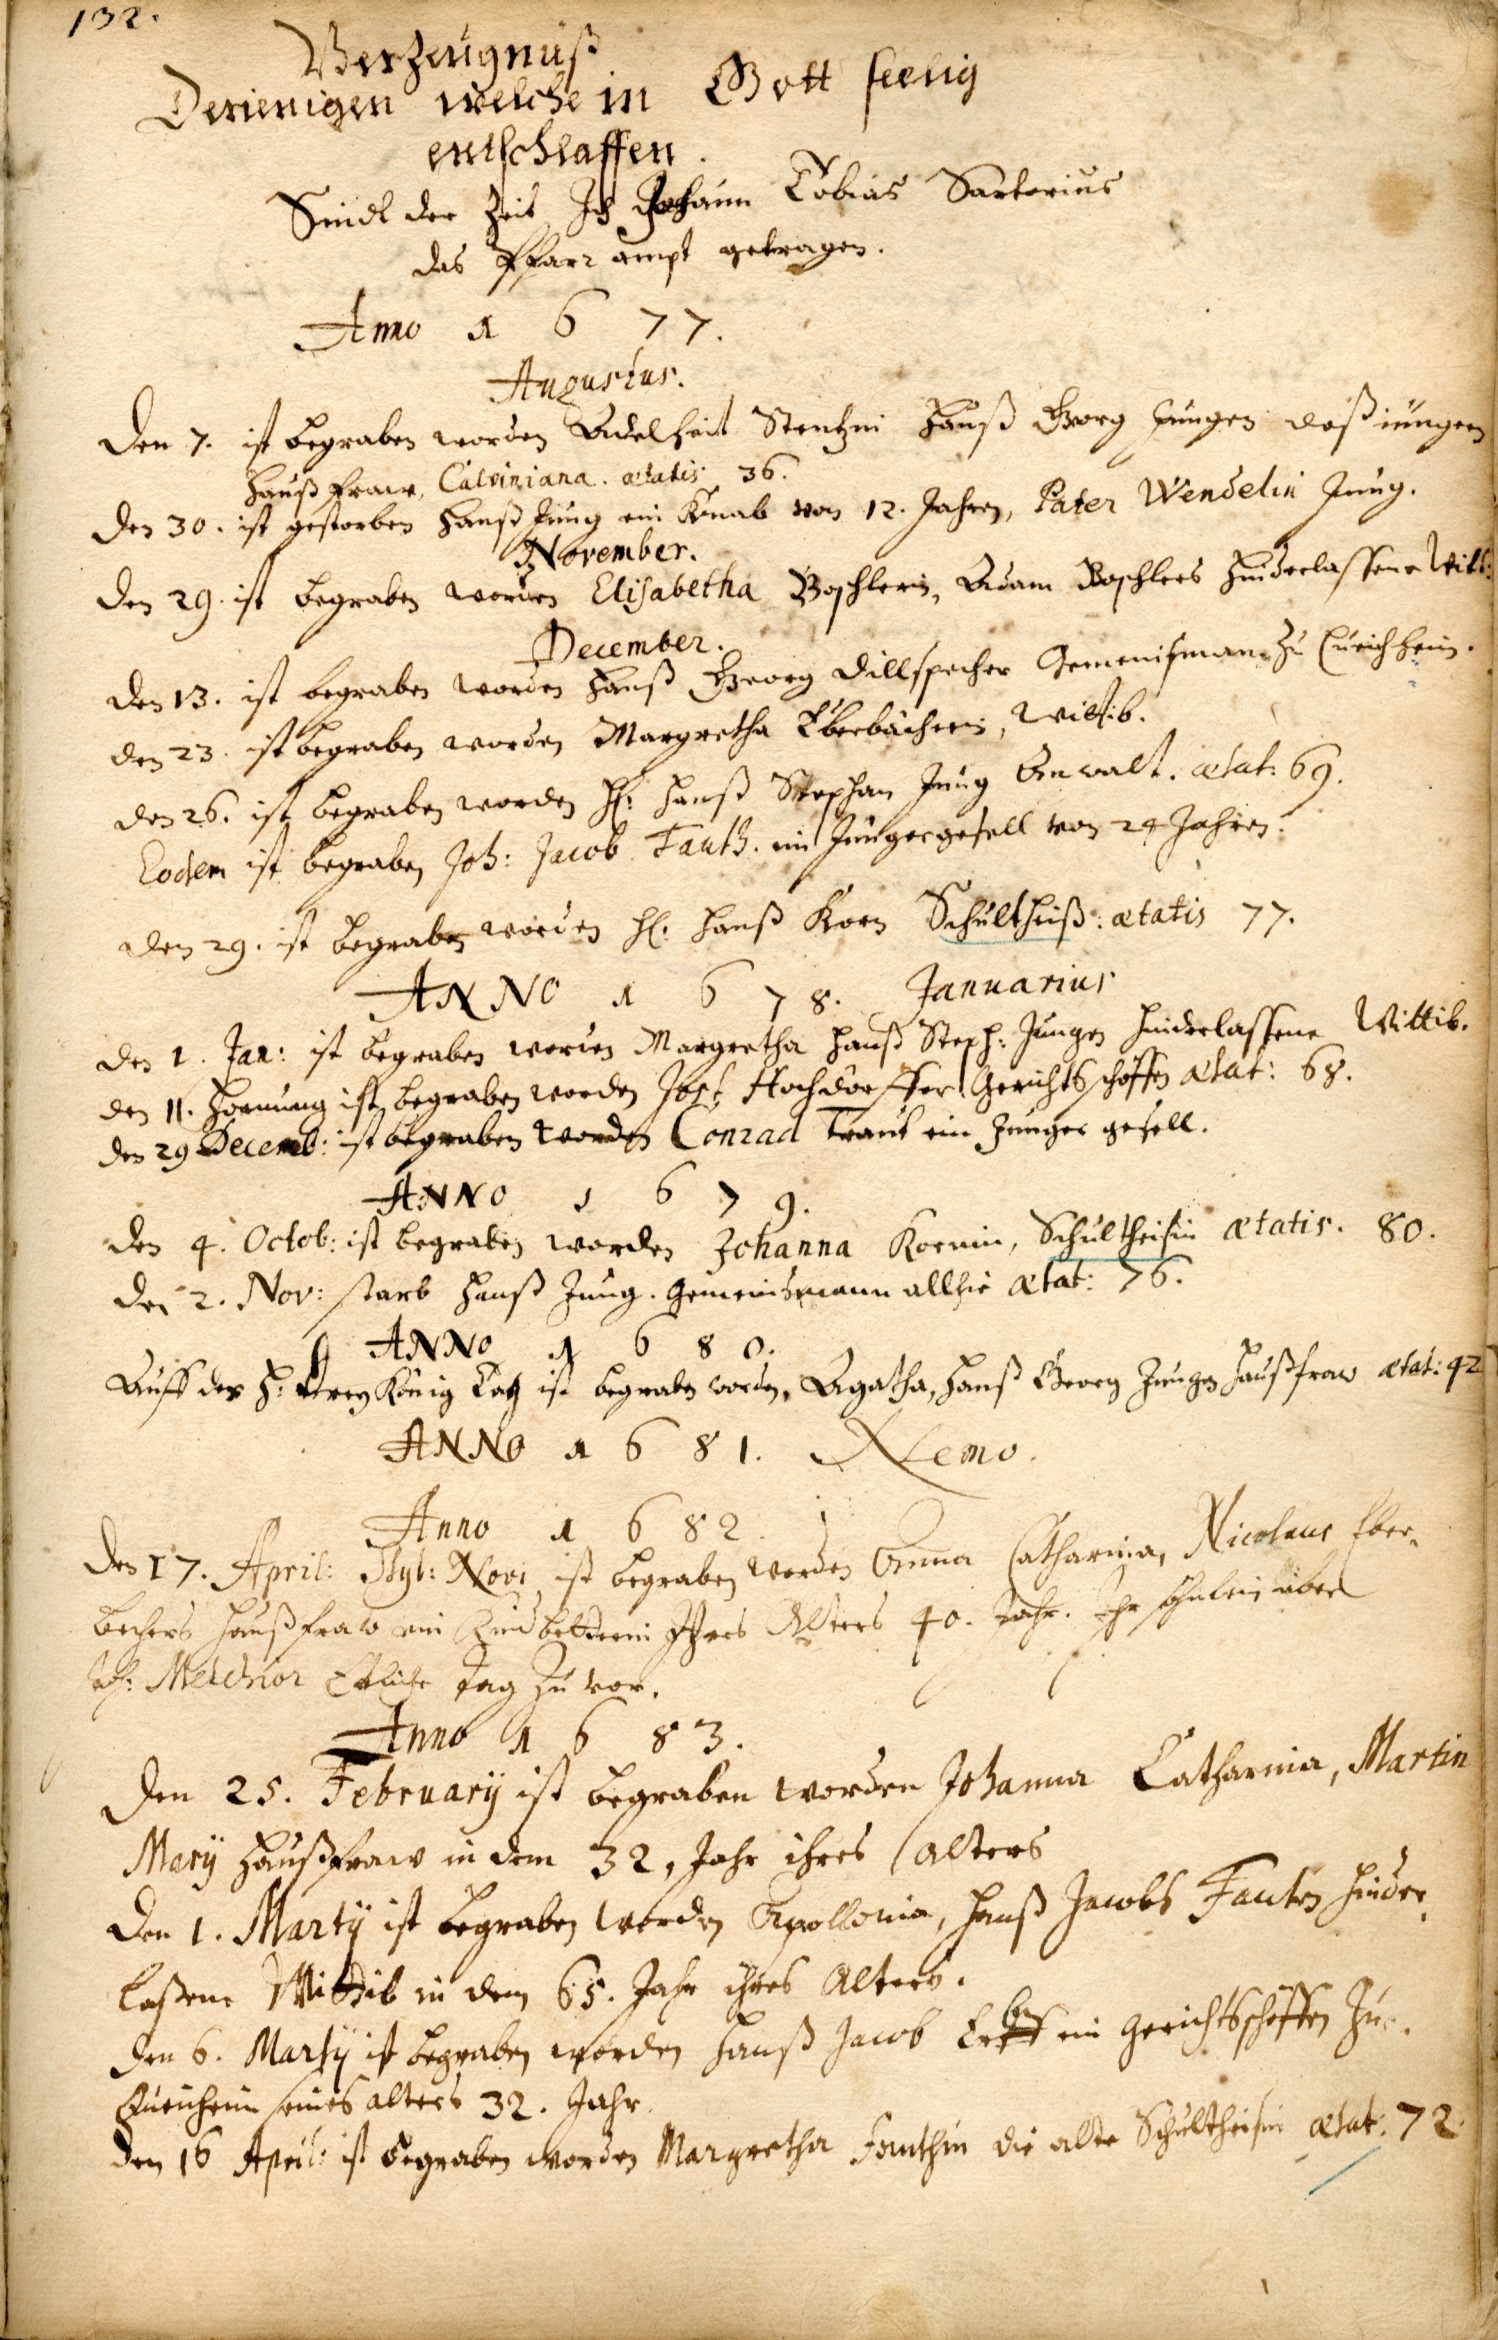 132.
Verzeügnuß
Derienigen welche in Gott seelig
entschlaffen.
Sindt der Zeit Ich Johann Tobias Sartorius
das Pfarr ampt getragen.
Anno 1677.
Augustus.
Den 7. ist begraben worden Adelheit Stentzin Hanß Georg Jungen deß jüngern
haußfraw, Calviniana. ætatis 36.
Den 30. ist gestorben Hanß Jung ein Knab von 12. Jahren, Pater Wendelin Jung.
November.
Den 29. ist begraben worden Elisabetha Boschlerin, Adam Boschlers hinderlassene Witt:
December.
Den 13. ist begraben worden Hanß Georg Dillspecher Gemeinsman zu
den 23. ist begraben worden Margretha Eberbächerin, Wittib.
den 26. ist begraben worden H: Hanß Stephan Jung Anwalt. ætat: 69.
Eodem ist begraben Joh: Jacob Fauth. ein Jungergesell von 24 Jahren.
den 29. ist begraben worden H: Hanß Korn Schultheiß: ætatis 77.
ANNO 1678. Januarius
den 1. Jan: ist begraben worden Margretha Hanß Steph: Jungen hinderlassene Wittib.
den 11. Hornung ist begraben worden Jost Hochdörffer Gerichtsschöffen ætat: 68.
den 29 Decemb: ist begraben worden Conrad Traut ein Junger gesell.
ANNO 1679.
den 4. Octob: ist begraben worden Johanna Kornin, Schultheisin ætatis. 80.
den 2. Nov: starb Hanß Jung. Gemeindsmann allhie ætat: 76.
ANNO 1680.
Auff der H: Drey König Tag ist begraben worden, Agatha, Hanß Georg Jungen Haußfraw ætat: 42
ANNO 1681. Nemo.
Anno 1682.
Den 17. April: Styl: Novi ist begraben worden Anna Catharina, Nicolaus Eber-
bechers haußfraw ein Kindbetterin Ihres Alters 40. Jahr. Ihr söhnlein aber
Joh: Melchior Etliche tag zu vor.
Anno 1683.
Den 25. Februarÿ ist begraben worden Johanna Catharina, Martin
Marÿ Haußfraw in dem 32, Jahr ihres Alters
Den 1. Martÿ ist begraben worden Apollonia, Hanß Jacobs Fauten hinder-
laßene Wittib in dem 65. Jahr ihres Alters.
den 6. Martÿ ist begraben worden Hanß Jacob ein Gerichtsschöffen zu
seines alters 32. Jahr.
den 16 April: ist begraben worden Margretha Fauthin die alte Schultheisin ætat: 72.